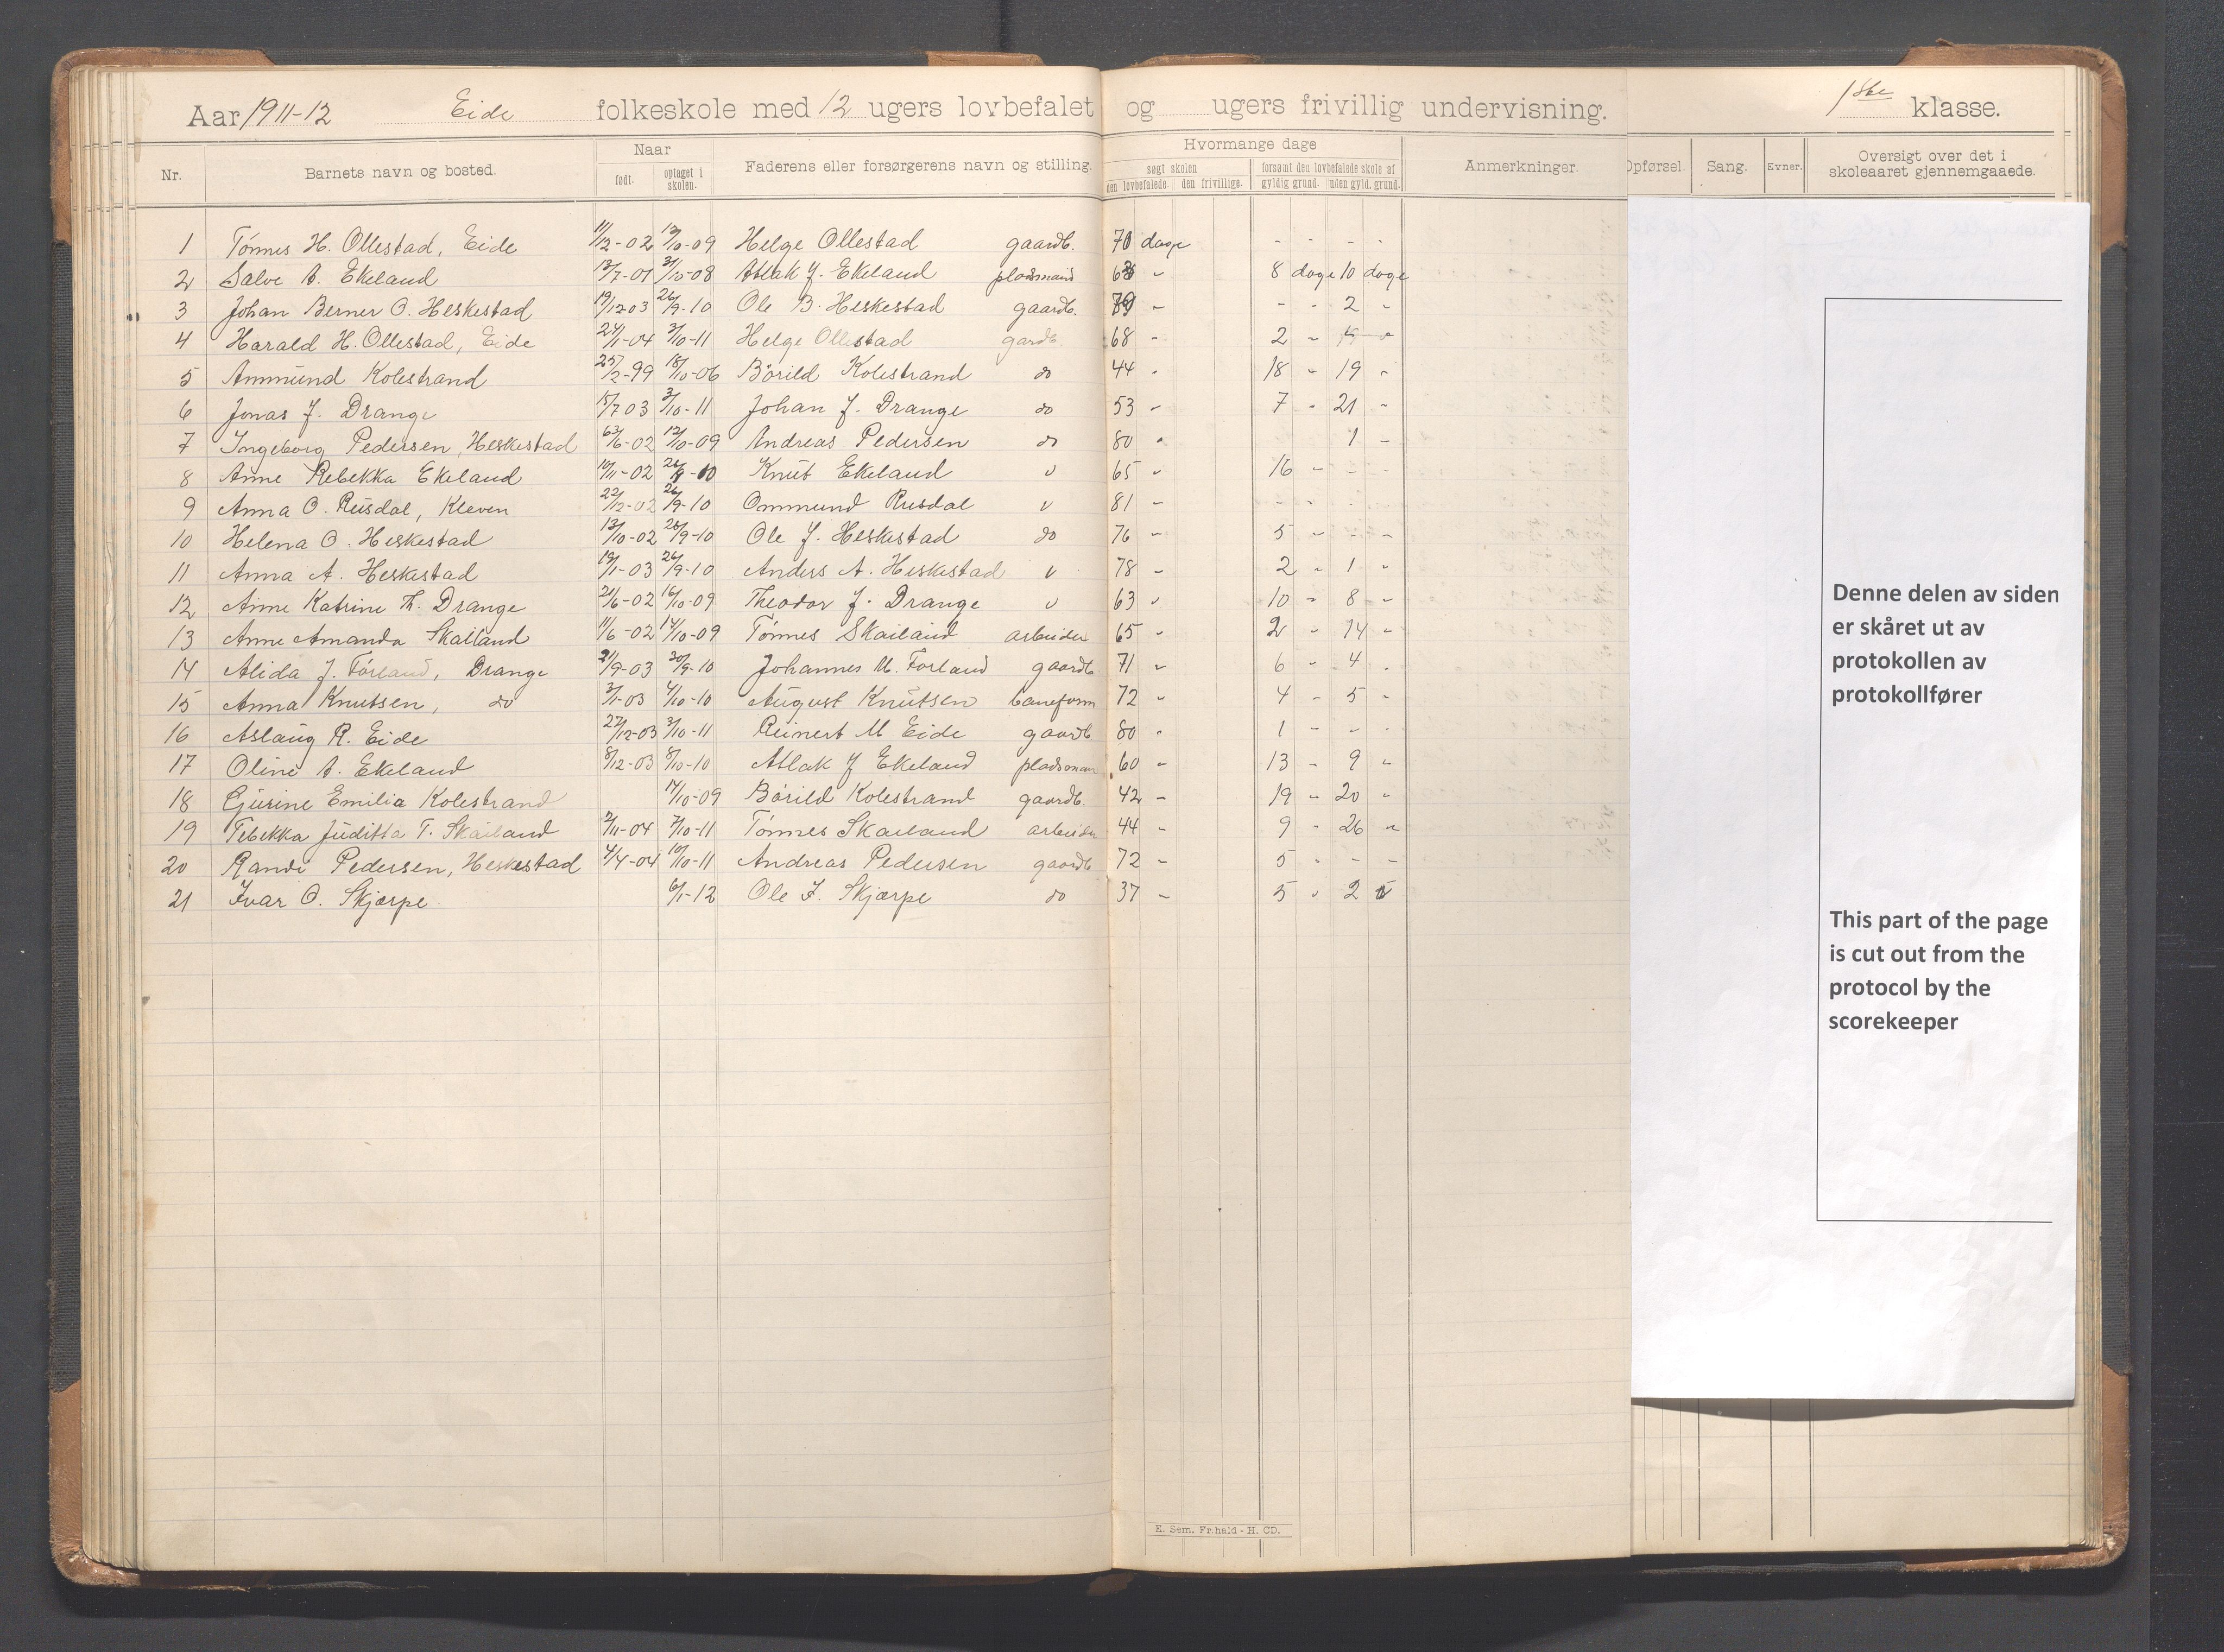 Aar 1911-12 Eide folkeskole med 12 ugers lovbefalet og ugers frivillig undervisning. 1ste klasse.
Nr. Barnets navn og bosted. Naar født. optaget i skolen. Faderens eller forsørgerens navn og stilling. Hvormange dage søgt skolen den lovbefalede den frivillige. forsømt den lovbefalede skole af gyldig grund. uden gyld. grund. Anmerkninger. Opførsel. Sang. Evner. Oversigt over det i skoleaaret gjennemgaaede.
1 Tönnes H. Ollestad, Eide 11/12-02 12/10-09 Helge Ollestad gaardb. 70 dage - - - -
2 Salve A. Ekeland 13/7-01 31/10-08 Atlak J. Ekeland pladsmand - 8 dage 10 dage
3 Johan Berner O. Heskestad 19/12-03 26/9-10 Ole B. Heskestad gaardb. 79 - - - 2 -
4 Harald H. Ollestad, Eide 24/1-04 3/10-11 Helge Ollestad gardb. 68 - 2 -
5 Ammund Kolestrand 25/2-99 18/10-06 Börild Kolestrand do 44 - 18 - 19 -
6 Jonas J. Drange 15/7 03 3/10-11 Johan J. Drange do 53 - 7 - 21 -
7 Ingeborg Pedersen, Heskestad /6-02 12/10-09 Andreas Pedersen do 80 - 1 -
8 Anne Rebekka Ekeland 10/11-02 26/9-10 Knut Ekeland " 65 - 16 - - -
9 Anna O. Rusdal, Kleven 22/12-02 26/9-10 Ommund Rusdal " 81 - - - -
10 Helena O. Heskestad 13/10-02 26/9-10 Ole J. Heskestad do 76 - 5 - - -
11 Anna A. Heskestad 19/1-03 26/9-10 Anders A. Heskestad " 78 - 2 - 1 -
12 Anne Katrine Th. Drange 21/6-02 16/10-09 Theodor J. Drange " 63 - 10 - 8 -
13 Anne Amanda Skailand 11/6-02 14/10-09 Tönnes Skailand arbeider 65 - 2 - 14 -
14 Alida J. Förland, Drange 21/9-03 30/9-10 Johannes M. Förland gaardb 71 - 6 - 4 -
15 Anna Knutsen, do 3/1-03 4/10-10 August Knutsen baneform 72 - 4 - 5 -
16 Aslaug R. Eide 27/12-03 3/10-11 Reinert M Eide gaardb. 80 - 1 - - -
17 Oline A. Ekeland 8/12-03 8/10-10 Atlak J Ekeland pladsman 60 - 13 - 9 -
18 Gjurine Emilia Kolestrand 14/10-09 Börild Kolestrand gaardb. 42 - 19 - 20 -
19 Tebekka Juditta T. Skailand 2/11-04 7/10-11 Tönnes Skailand arbeider 44 - 9 - 26 -
20 Randi Pedersen, Heskestad 4/4-04 10/10-11 Andreas Pedersen gaardb 72 - 5 - - -
21 Ivar O. Skjærpe 6/1-12 Ole I. Skjærpe do 37 - 5 - 2
Denne delen av siden
er skåret ut av
protokollen av
protokollfører
This part of the page
is cut out from the
protocol by the
scorekeeper
E. Sem. Fr.hald - H. CD.